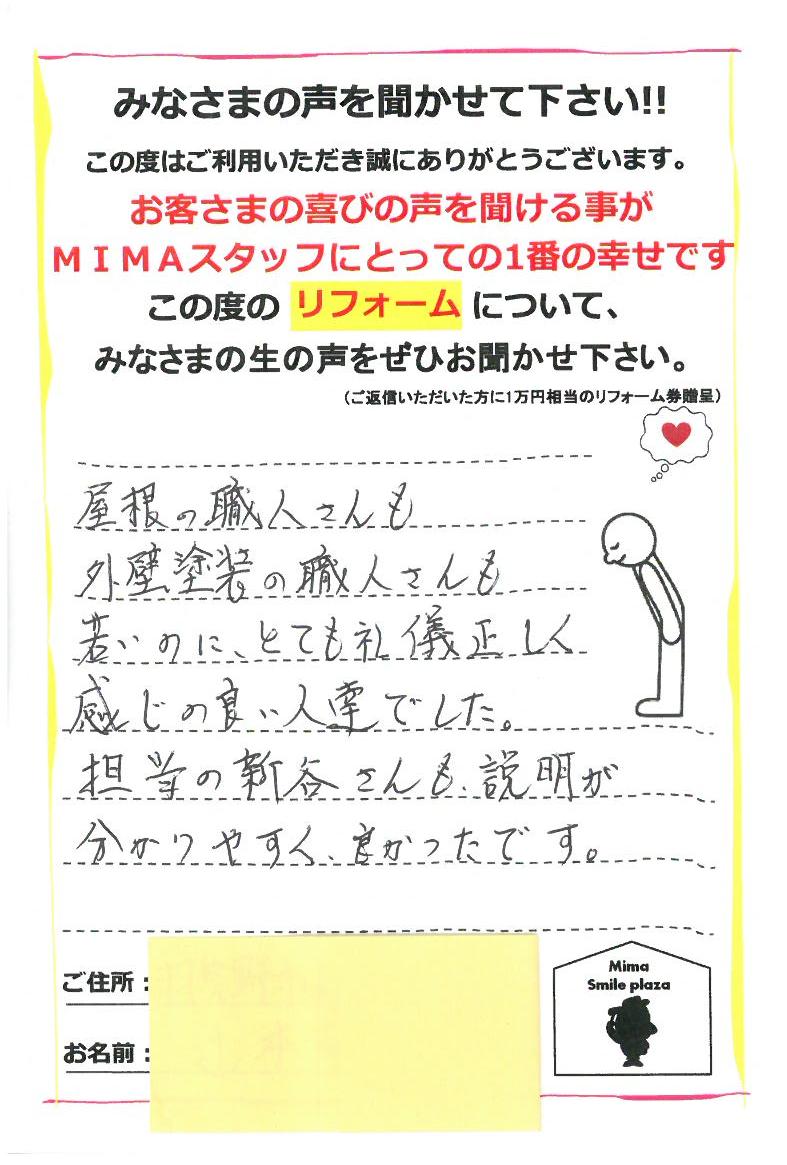 みなさまの声を聞かせて下さい!!
この度はご利用いただき誠にありがとうございます。
お客さまの喜びの声を聞ける事が
ＭＩＭＡスタッフにとっての1番の幸せです
この度の リフォーム について、
みなさまの生の声をぜひお聞かせ下さい。
（ご返信いただいた方に1万円相当のリフォーム券贈呈）
屋根の職人さんも
外壁塗装の職人さんも
若いのに、とても礼儀正しく
感じの良い人達でした。
担当の新谷さんも、説明が
分かりやすく、良かったです。
ご住所：
お名前：
Mima
Smile plaza